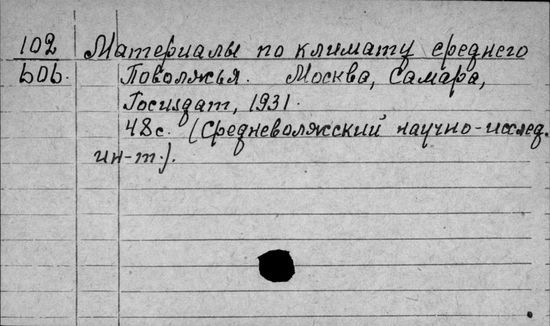 102 Материалы по климату среднего
606. Поволжья. Москва, Самара,
Госиздат, 1931.
48с. (Средневолжский научно-исслед.
ин-т.).